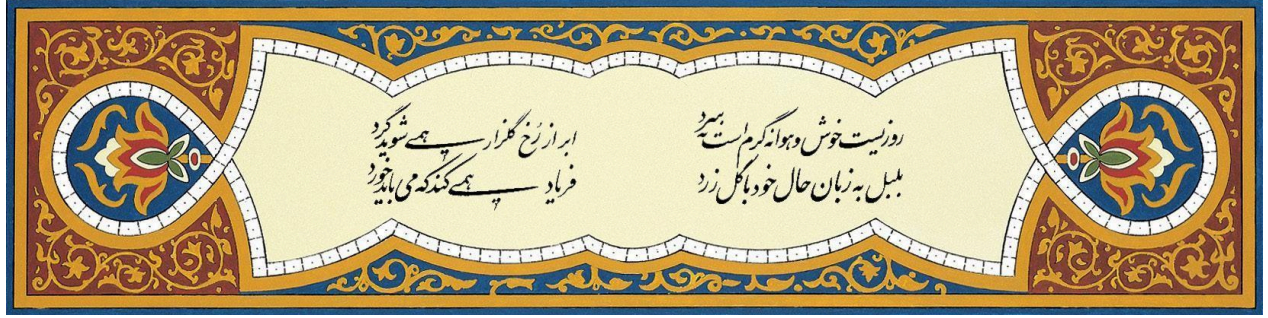 روزیست خوش و هوا نه گرم است نه سرد
ابر از رُخ گلزار همی شوید گرد
بلبل به زبان حال خود با گل زرد
فریاد همی کند که می باید خورد